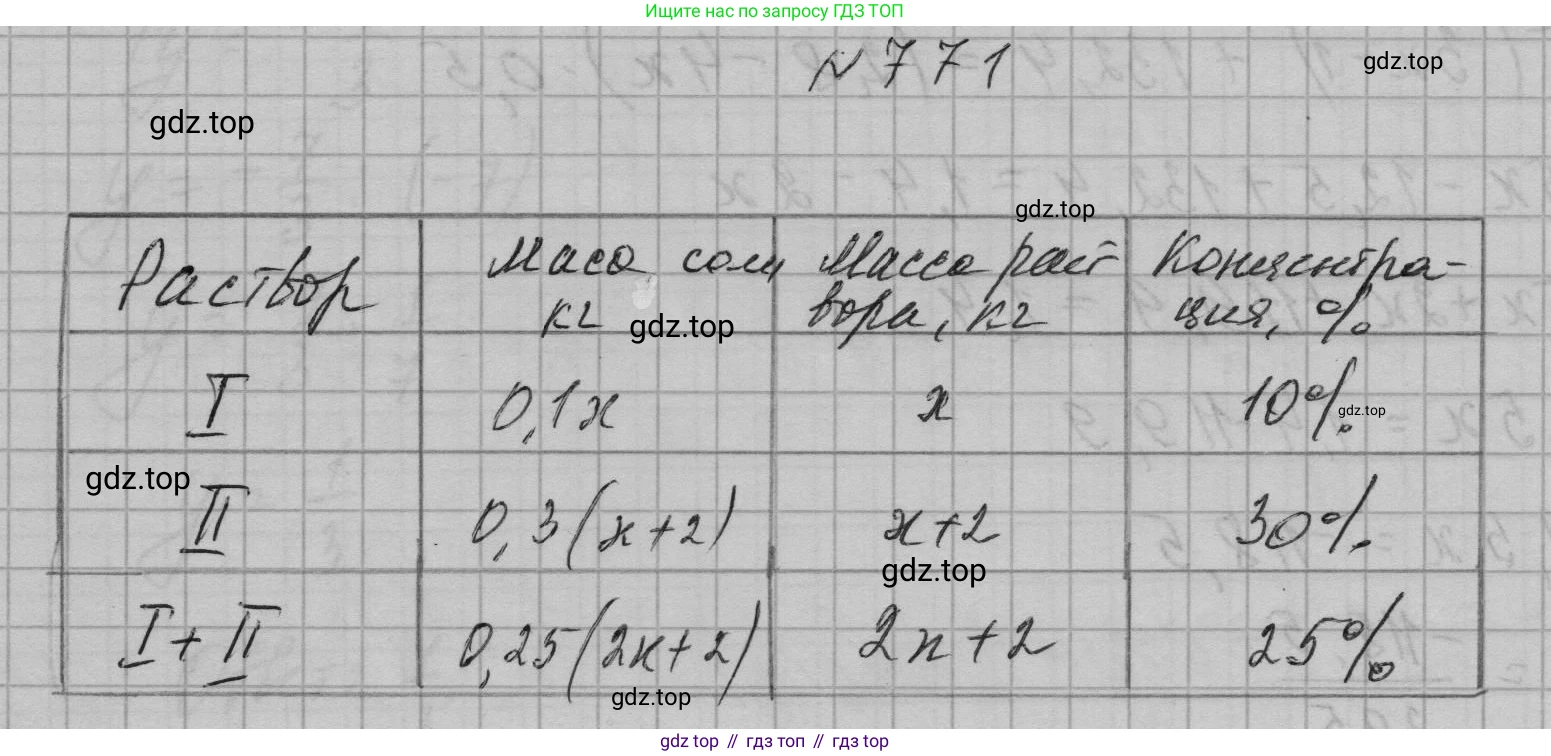 Ищите нас по запросу ГДЗ ТОП
№771
gdz.top
gdz.top
gdz.top
Раствор
Маса соли
кг
Масса раст
вора, кг
Концентра-
ция, %
gdz.top
I
0,1x
x
10%
gdz.top
gdz.top
II
0,3(x+2)
x+2
30%
gdz.top
I+II
0,25(2x+2)
2x+2
25%
gdz.top
gdz top // гдз топ // гдз top